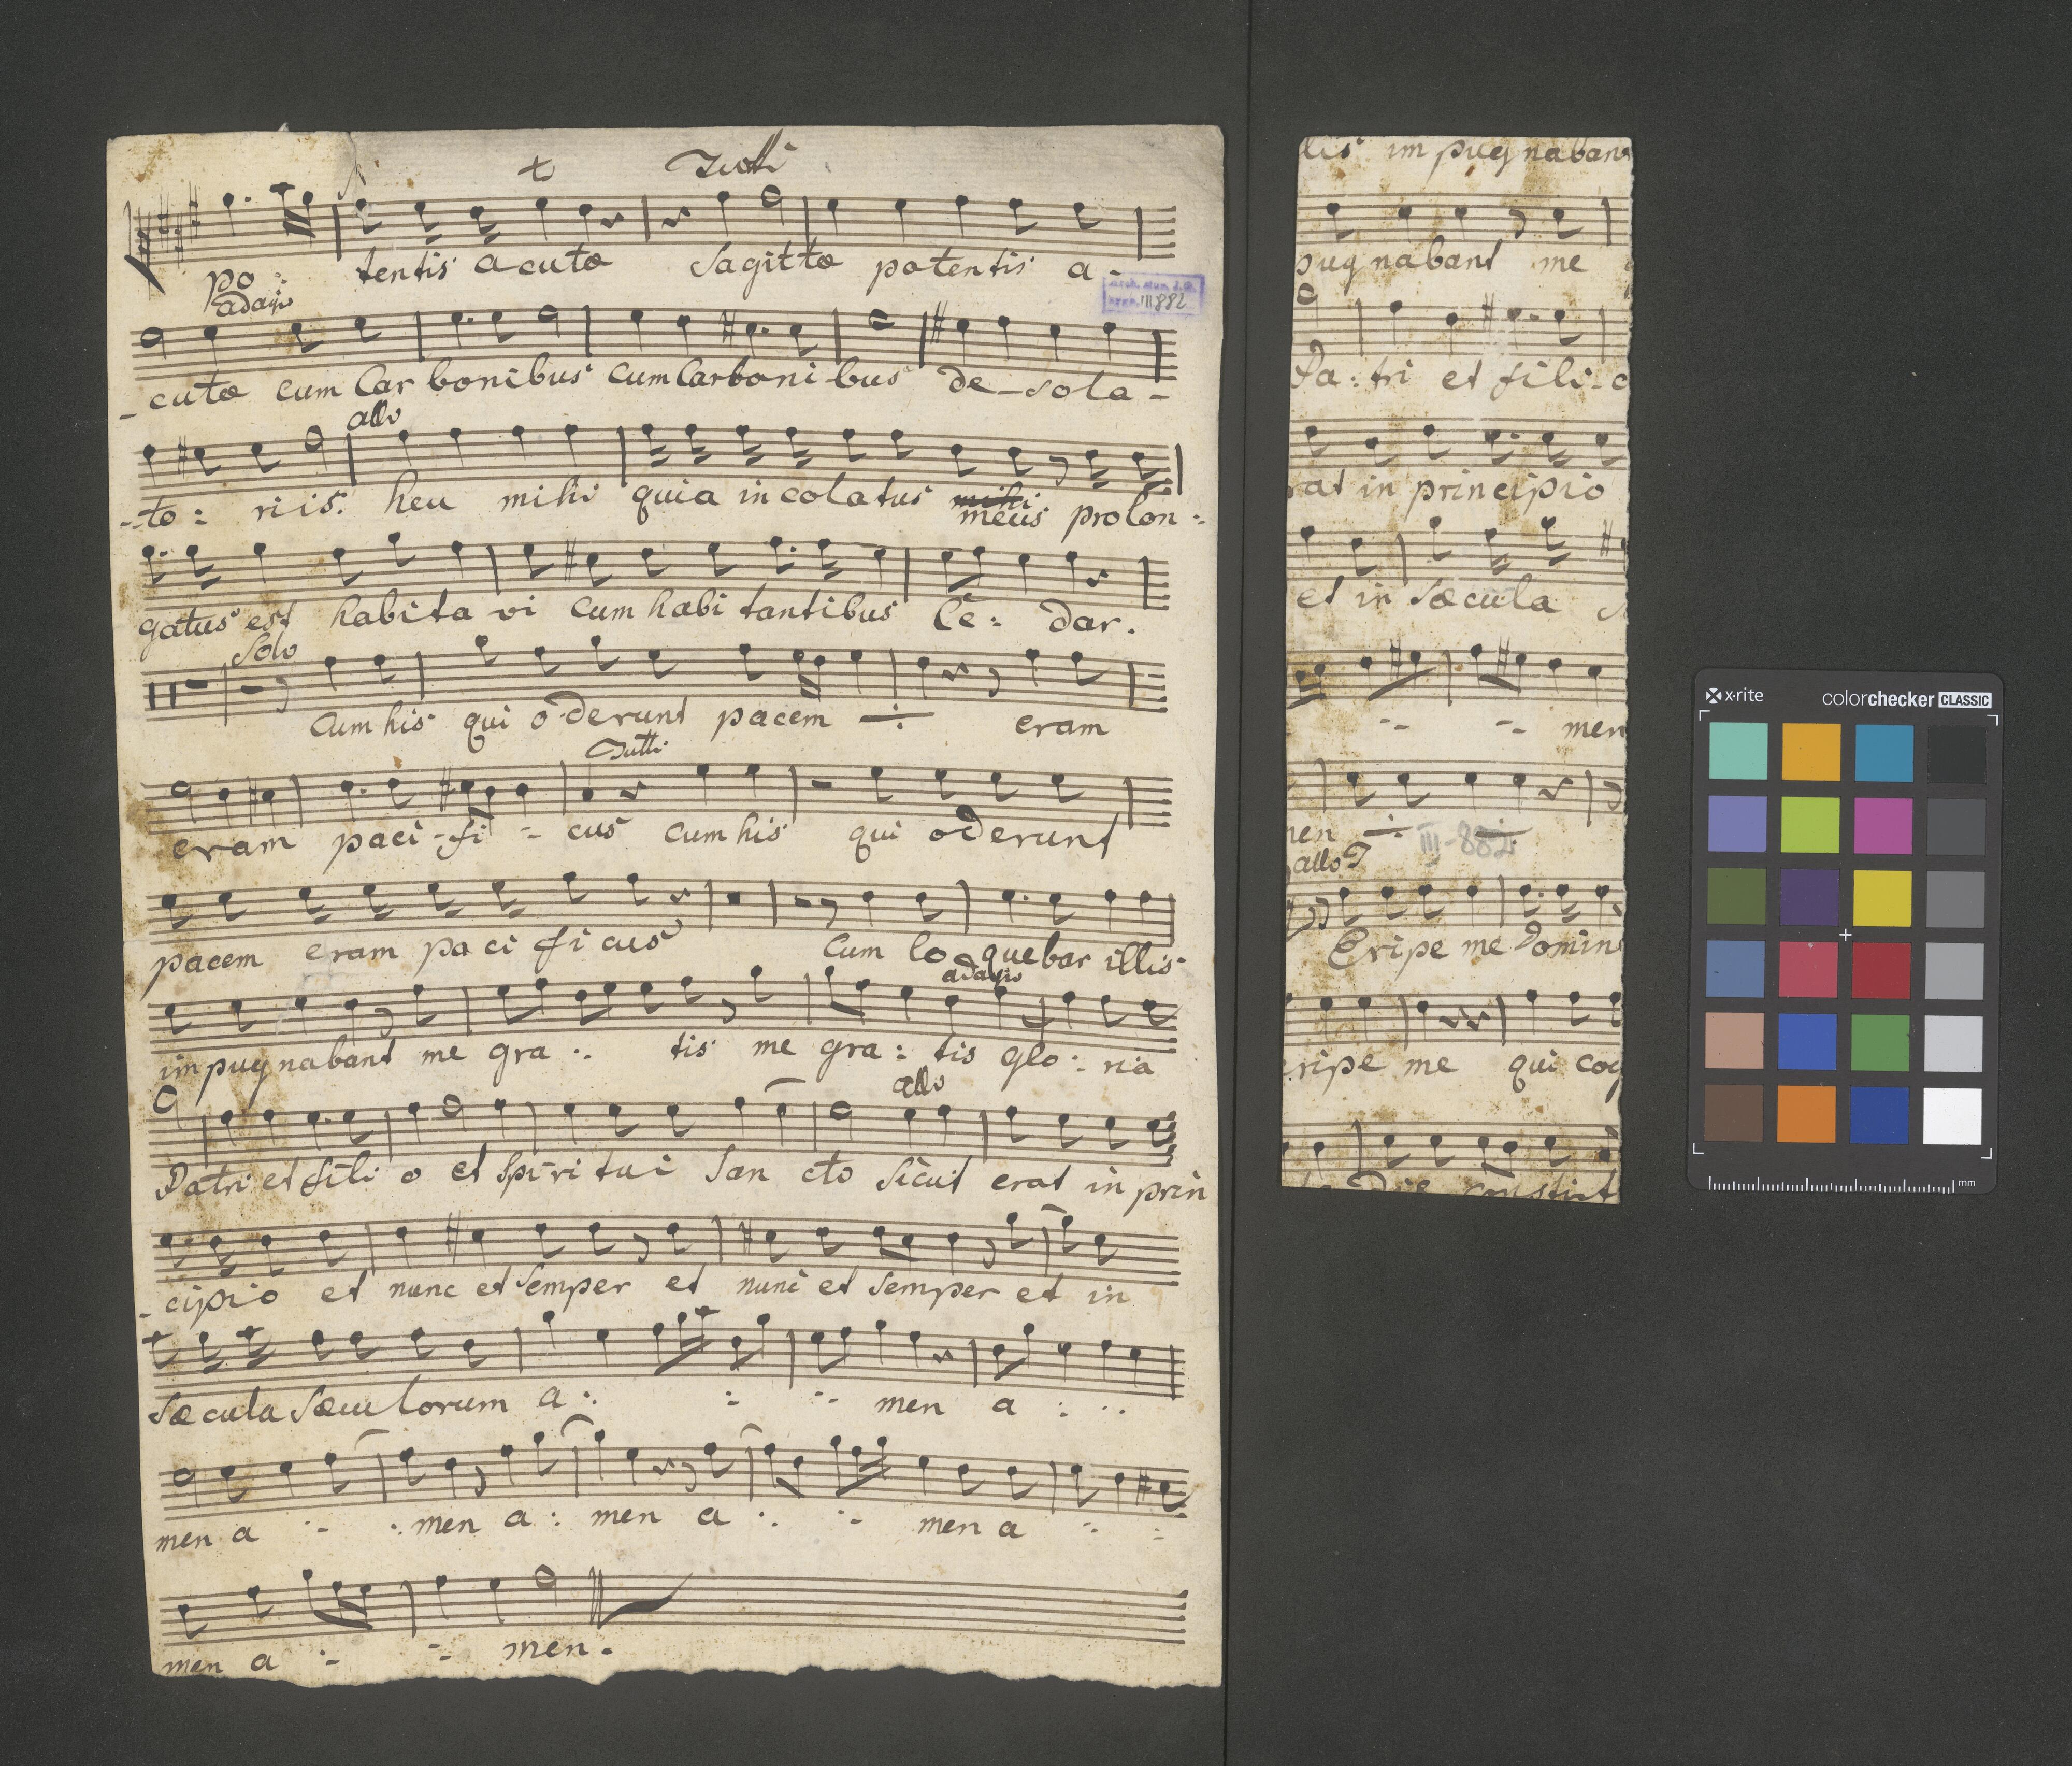 Tutti
po : tentis acutæ Sagittæ potentis a -
adagio
- cutæ cum Carbonibus cum Carboni bus de - sola -
allo
- to : riis. heu mihi quia in colatus mihi meus prolon :
gatus est habita vi cum habi tantibus Ce : dar.
Solo
Cum his qui o derunt pacem -:- eram
Tutti
eram paci - fi - cus cum his qui oderunt
pacem eram pa ci fi cus Cum lo quebar illis
adagio
im pug nabant me gra :. tis me gra : tis glo : ria
allo
Patri et fili o et Spi ri tui San cto Sicut erat in prin
- cipio et nunc et Semper et nunc et Semper et in
Sæ cula Sæcu lorum a :. : :- men a : :.
men a :- :. men a : men a :. :- men a :. :
men a :- :- men.
III 882
llis im pug nabant
pug nabant me
Pa : tri et fili - o
rat in principio
et in Sæ cula
:- :- men
men -:- -:-
III-882
allo T
Eripe me Domin
eripe me qui cog
constit
x·rite colorchecker CLASSIC
mm